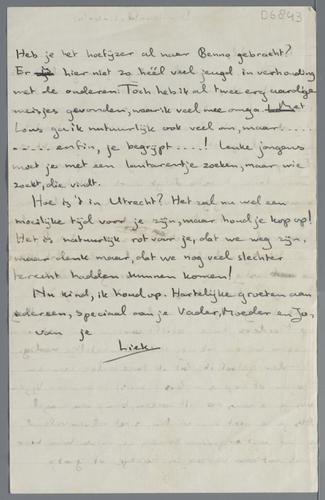 D6843
Heb je het hoefijzer al naar Benno gebracht?
Er is hier niet zo héél veel jeugd in verhouding
met de ouderen. Toch heb ik al twee erg aardige
meisjes gevonden, waar ik veel mee omga. Met
Lous ga ik natuurlijk ook veel om, maar . . . .
. . . . . . . enfin, je begrijpt . . . . .! Leuke jongens
moet je met een lantarentje zoeken, maar wie
zoekt, die vindt.
Hoe is 't in Utrecht? Het zal nu wel een
moeilijke tijd voor je zijn, maar houd je kop op!
Het is natuurlijk rot voor je, dat we weg zijn,
maar denk maar, dat we nog veel slechter
terecht hadden kunnen komen!
Nu kind, ik houd op. Hartelijke groeten aan
iedereen, speciaal aan je Vader, Moeder en Jo,
van je
Liek